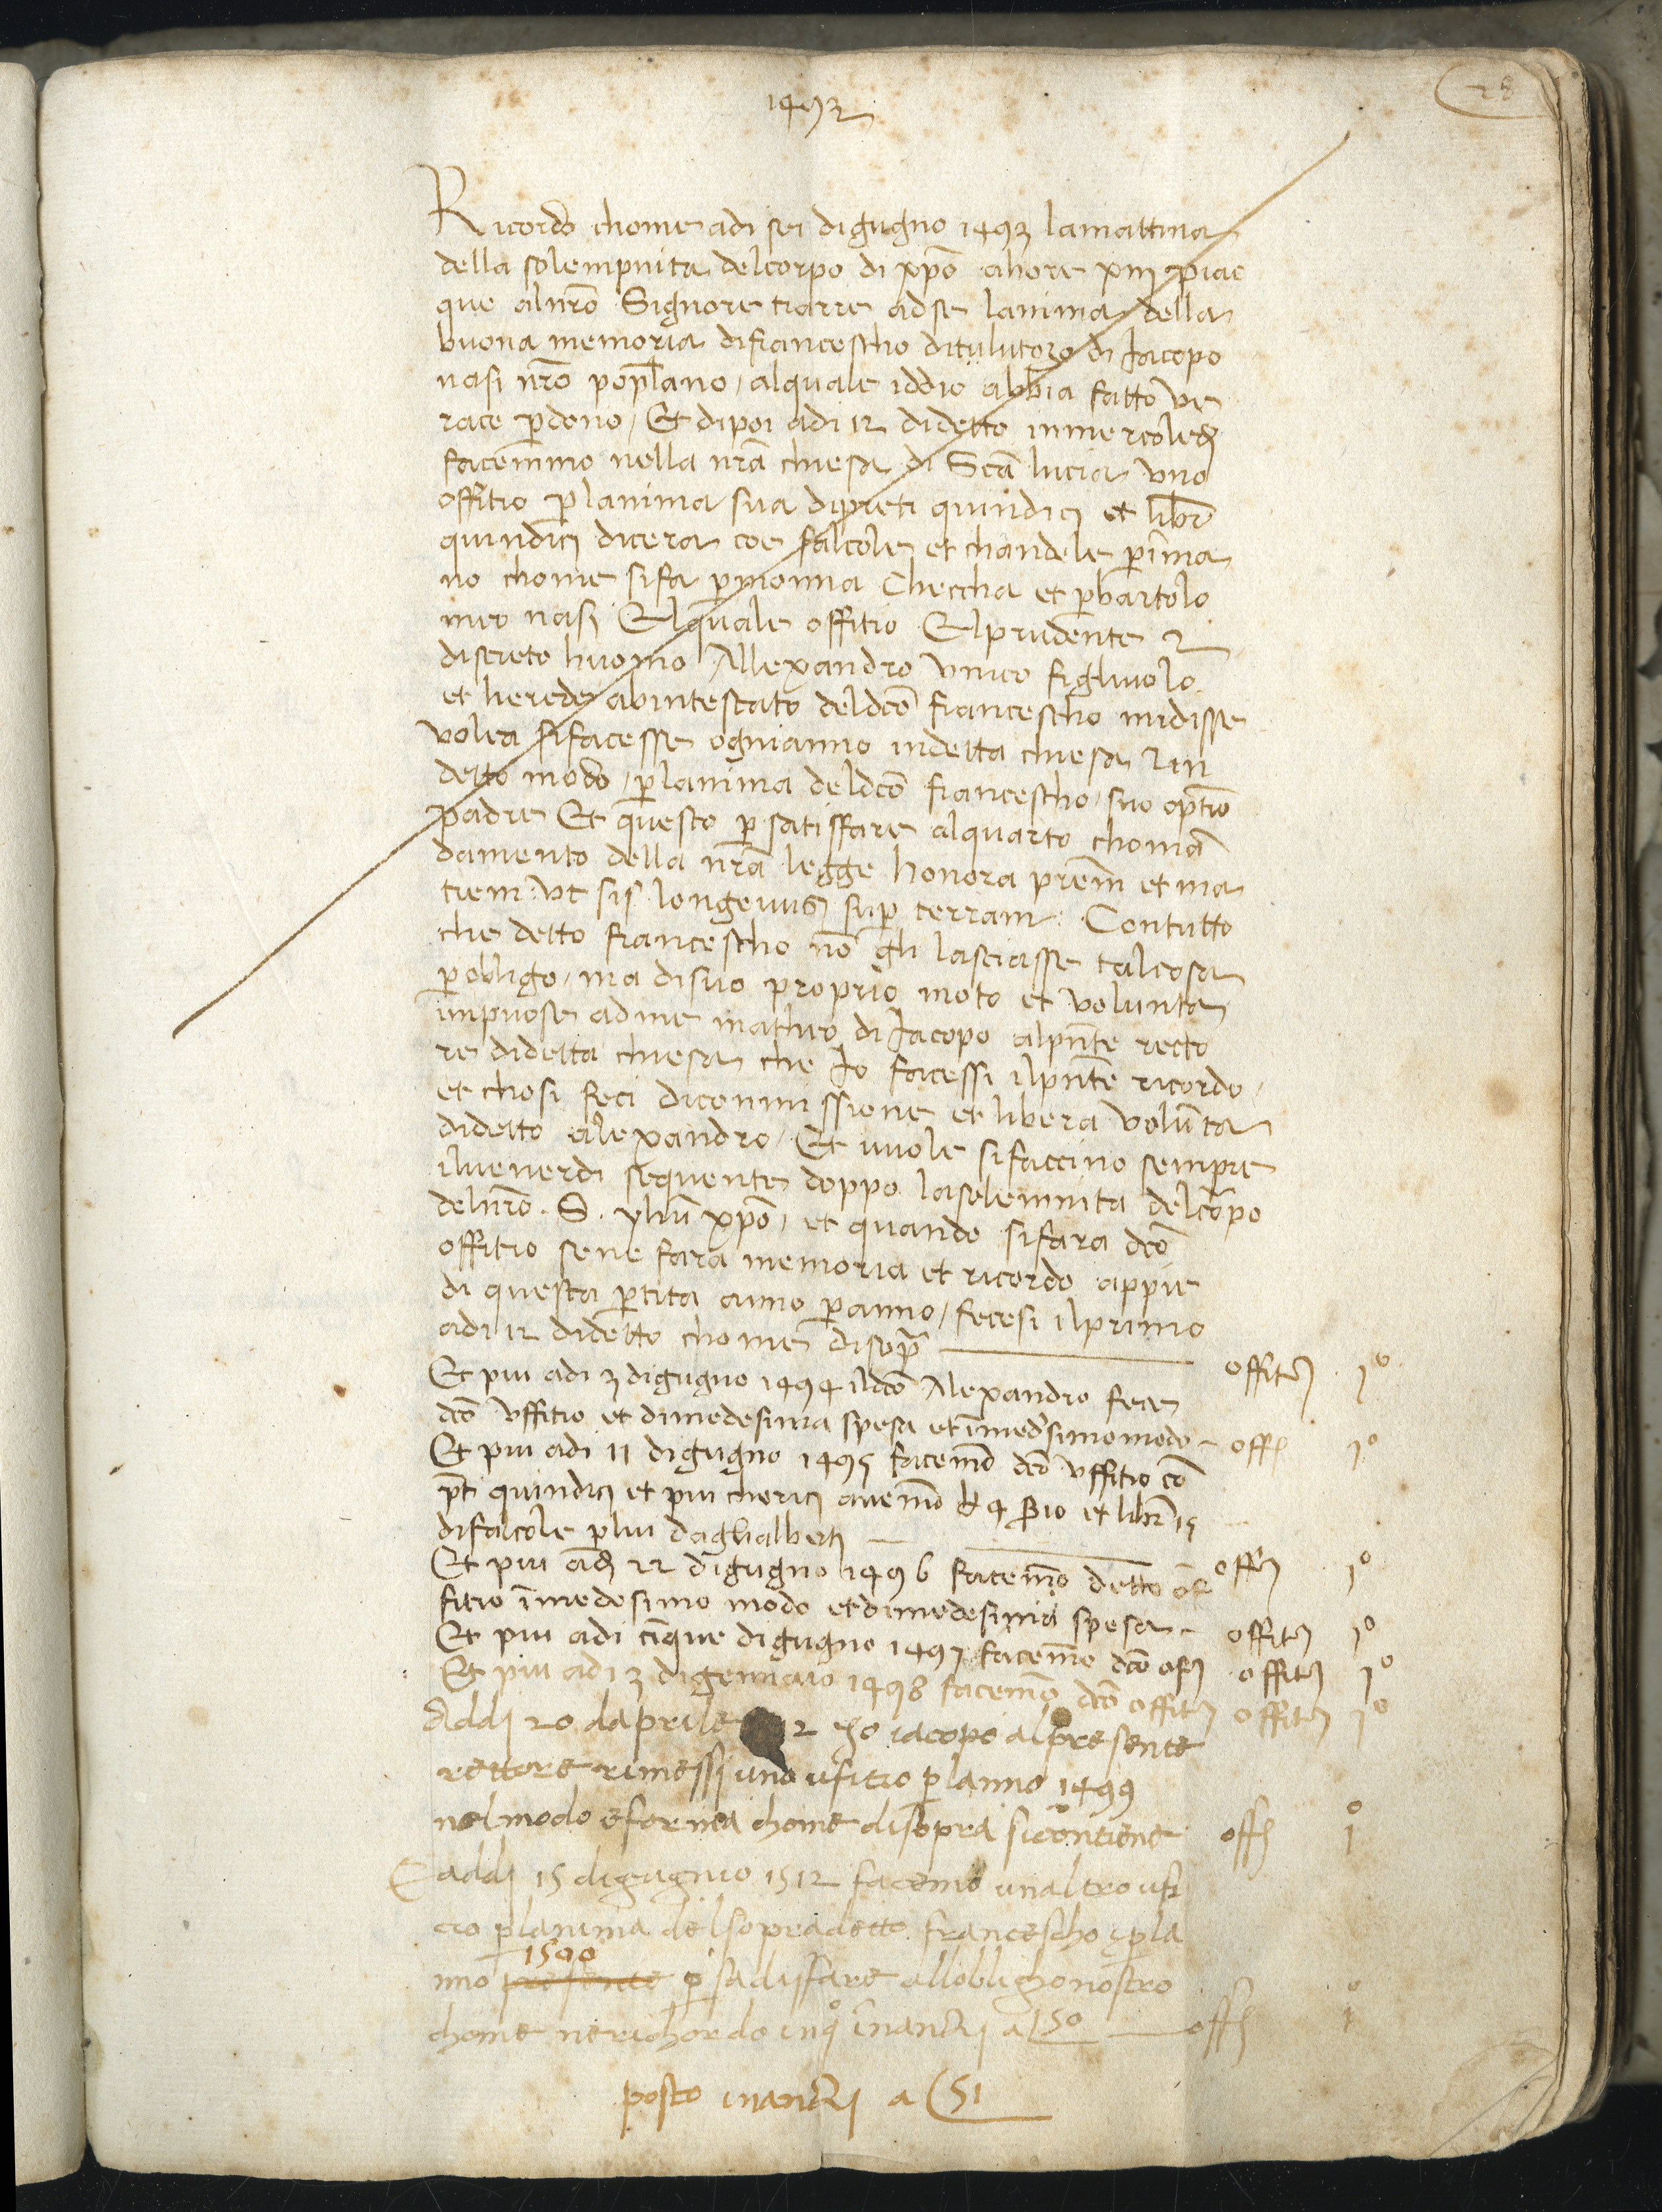 28
1493
Ricordo chome adi sei digugno 1493 lamattina
della solempnita delcorpo di xpō ahore xiij piac
que alnrō Signore tiarre adse lanima della
buona memoria difrancescho di di Iacopo
nasi nrō popłano / alquale iddio abbia fatto ve
race pdono / Et dipoi adi 12 didetto inmercoledj
facemmo nella nrā chiesa di Scā lucia uno
offitio planima sua dipreti quindicj et libr
quindicj dicera coe falcole et chandele pīma
no chome sifa pmonna Checcha et pbartolo
meo nasj Elquale offitio Elprudente 2
discreto huomo Allexandro unico figliuolo
et herede abintestato deldcō francescho midisse
volea sifacesse ognianno indetta chiesa 2 in
detto modo / planima deldcō francescho / suo optīo
padre Et questo p satisffare alquarto chomā
damento della nrā legge honora prēm et ma
trem ut sis longeuus sup terram. Contutto
che detto francescho nō gli lasciasse talcosa
pobligo / ma disuo proprio moto et volunta
impuose adme matheo di Iacopo alpn̄te recto
re didetta chiesa che Io facessi ilpn̄te ricordo /
et chosi feci dicommissione et libera volūta
didetto alexandro / Et vuole sifaccino sempre
iluenerdi sequente doppo lasolemnita delcorpo
delnrō. S. yhū xpō / et quando sifara dcō
offitio sene fara memoria et ricordo appie
di questa ptita anno panno / fecesi ilprimo
adi 12 didetto chome disopra offitio 1°
Et piu adi 3 digugno 1494 ildcō Alexandro fece
dcō uffitio et dimedesima spesa et īmedesimomodo - offo 1°
Et piu adi 11 digugno 1495 facemō dcō uffitio cō
pti quindicj et piu chericj auemō et libr 15
difalcole plui daglialbertj offo 1°
Et piu adj 22 digugno 1496 facemō detto of
fitio īmedesimo modo et dimedesima spesa - offitio 1°
Et piu adi cīque digugno 1497 facemō dcō ofo offitio 1°
Et piu adi 3 digennaio 1498 facemō dcō offitio offitio 1°
Addj 20 daprile 2 Jo iacopo alpresente
rettore rimessj uno ufitio planno 1499
nelmodo eforma chome disopra sicontiene offo 1°
E addj 15 digugnio 1512 facemo unaltro ufi
cio planima delsopradetto francescho pla
nno presente 1500 p sadisfare allobligho nostro
chome nerichordo inq° inantj a 50 offo 1°
posto inantj a 51